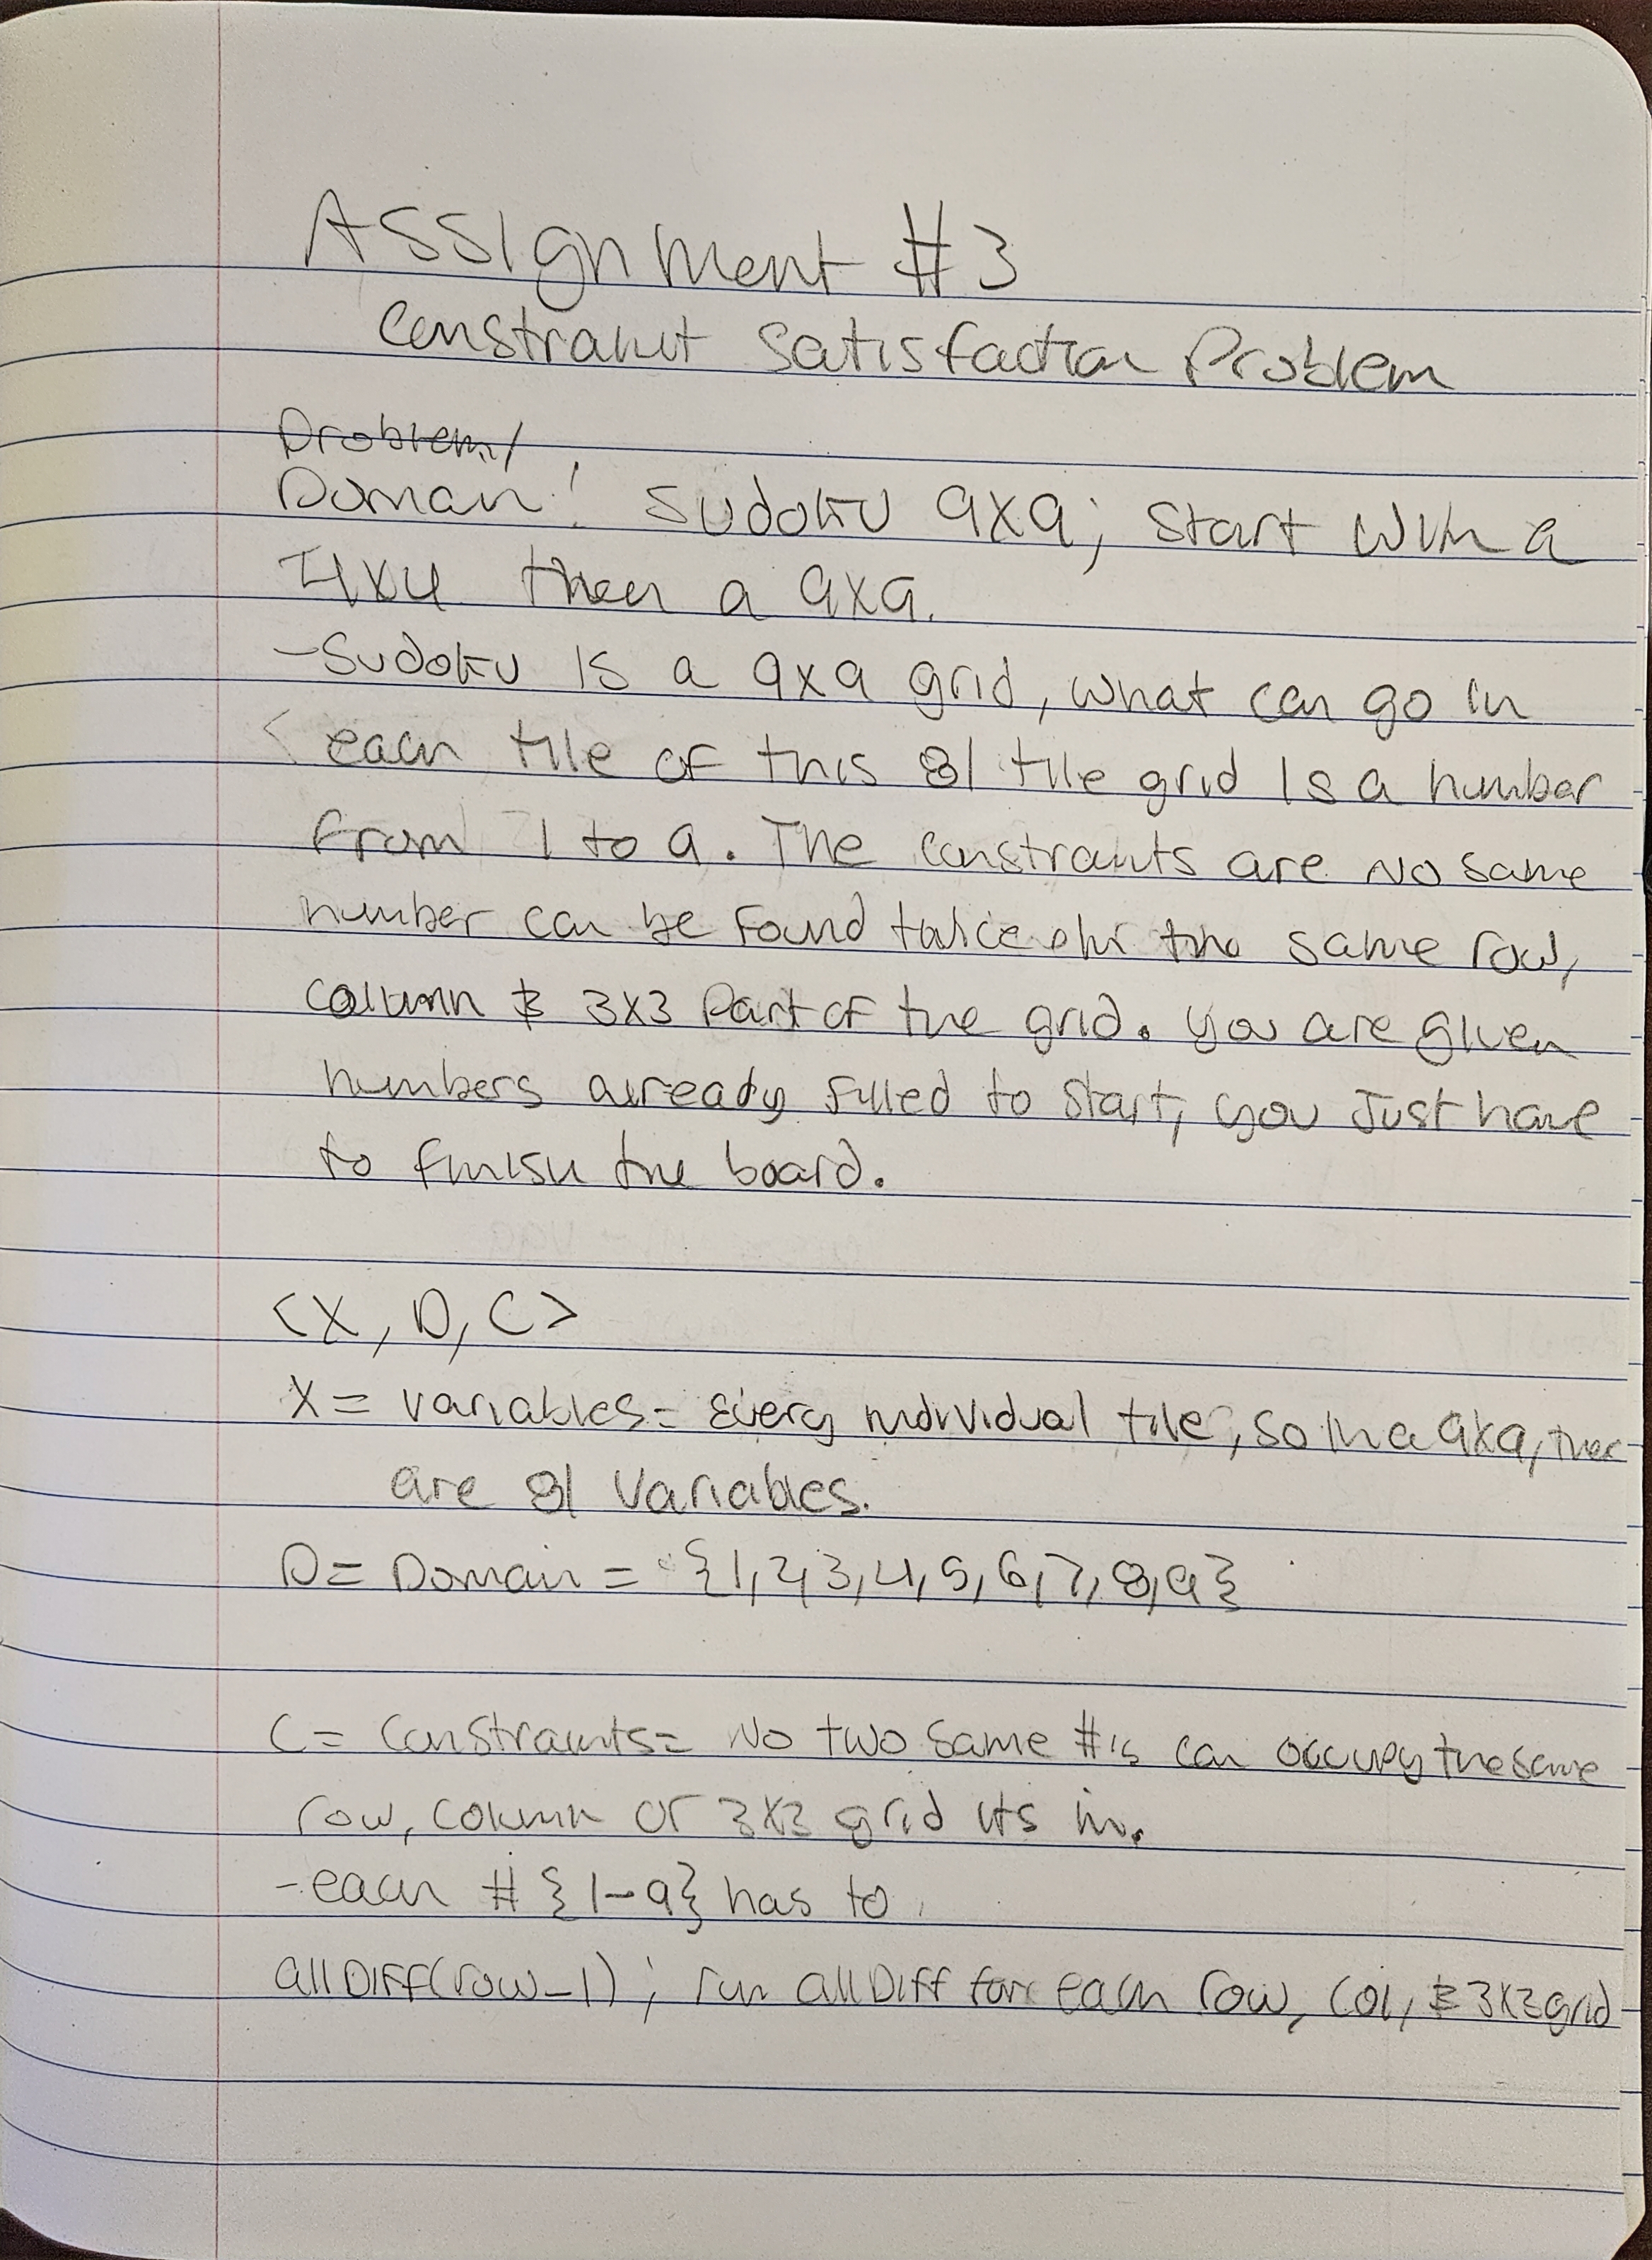 Assignment #3
Constraint Satisfaction Problem
Problem/
Domain: Sudoku 9x9; start with a
4x4 then a 9x9.
- Sudoku is a 9x9 grid, what can go in
each tile of this 81 tile grid is a number
from 1 to 9. The constraints are no same
number can be found twice in the same row,
column & 3x3 part of the grid. You are given
numbers already filled to start, you just have
to finish the board.
<X, D, C>
X = variables = every individual tile, so in a 9x9, there
are 81 variables.
D = Domain = {1,2,3,4,5,6,7,8,9}
C = Constraints = No two same #'s can occupy the same
row, column or 3x3 grid its in.
- each # {1-9} has to
allDiff(row_1) ; run allDiff for each row, col, & 3x3 grid